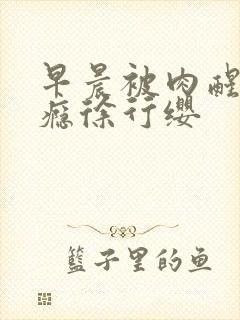 早晨被肉醒
瘾徐行缨
籃子里的鱼